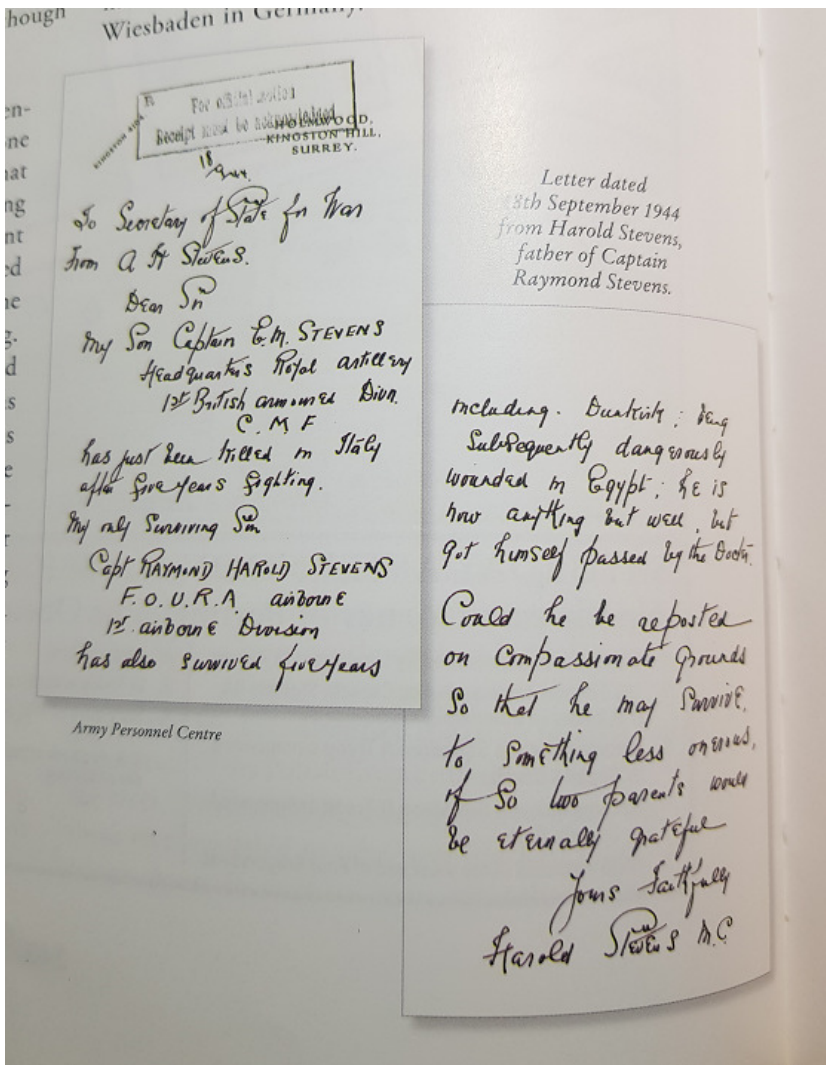 hough
Wiesbaden in Germany.
en-
ne
hat
ng
nt
ed
ne
g.
d
s
s
e
For official action
Receipt must be acknowledged
HOLMWOOD,
KINGSTON HILL,
SURREY.
18
To Secretary of State for War
From A H Stevens.
Dear Sir
My Son Captain E.M. STEVENS
Headquarters Royal artillery
1st British armoured Divn.
C. M F
has just been killed in Italy
after five years fighting.
My only surviving Son
Capt RAYMOND HAROLD STEVENS
F.O.U.R.A. airborne
1st. airborne Division
has also survived five years
Army Personnel Centre
Letter dated
18th September 1944
from Harold Stevens,
father of Captain
Raymond Stevens.
including. Dunkirk; being
subsequently dangerously
wounded in Egypt; he is
now anything but well, but
got himself passed by the Doctor.
Could he be reposted
on compassionate grounds
so that he may survive,
to something less onerous,
if so two parents would
be eternally grateful
Yours Faithfully
Harold Stevens M.C